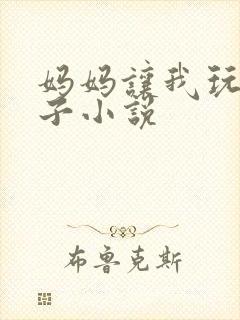 妈妈让我玩
子小说
布鲁克斯